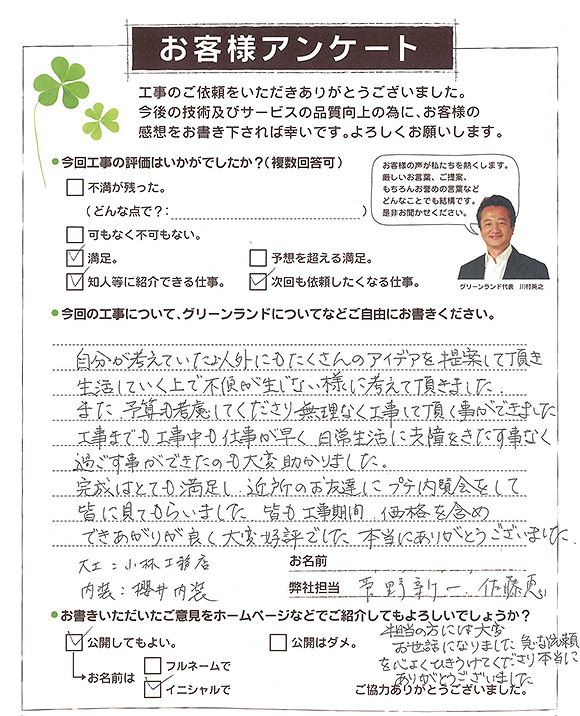 お客様アンケート
工事のご依頼をいただきありがとうございました。
今後の技術及びサービスの品質向上の為に、お客様の
感想をお書き下されば幸いです。よろしくお願いします。
●今回工事の評価はいかがでしたか?(複数回答可)
不満が残った。
(どんな点で?: )
可もなく不可もない。
満足。
予想を超える満足。
知人等に紹介できる仕事。
次回も依頼したくなる仕事。
お客様の声が私たちを熱くします。
厳しいお言葉、ご提案、
もちろんお誉めの言葉など
どんなことでも結構です。
是非お聞かせください。
グリーンランド代表 川村英之
●今回の工事について、グリーンランドについてなどご自由にお書きください。
自分が考えていた以外にもたくさんのアイデアを提案して頂き
生活していく上で不便が生じない様に考えて頂きました。
また 予算も考慮してくださり無理なく工事して頂く事ができました
工事までも工事中も仕事が早く 日常生活に支障をきたす事なく
過ごす事ができたのも大変助かりました。
完成はとても満足し 近所のお友達に プチ内覧会をして
皆に見てもらいました 皆も工事期間 価格を含め
できあがりが良く大変好評でした 本当にありがとうございました
大工:小林工務店
内装:櫻井内装
お名前
弊社担当 菅野新一 佐藤恵
●お書きいただいたご意見をホームページなどでご紹介してもよろしいでしょうか?
公開してもよい。
公開はダメ。
お名前は
フルネームで
イニシャルで
担当の方には大変
お世話になりました 急な依頼
を心よくひきうけてくださり本当に
ありがとうございました
ご協力ありがとうございました。